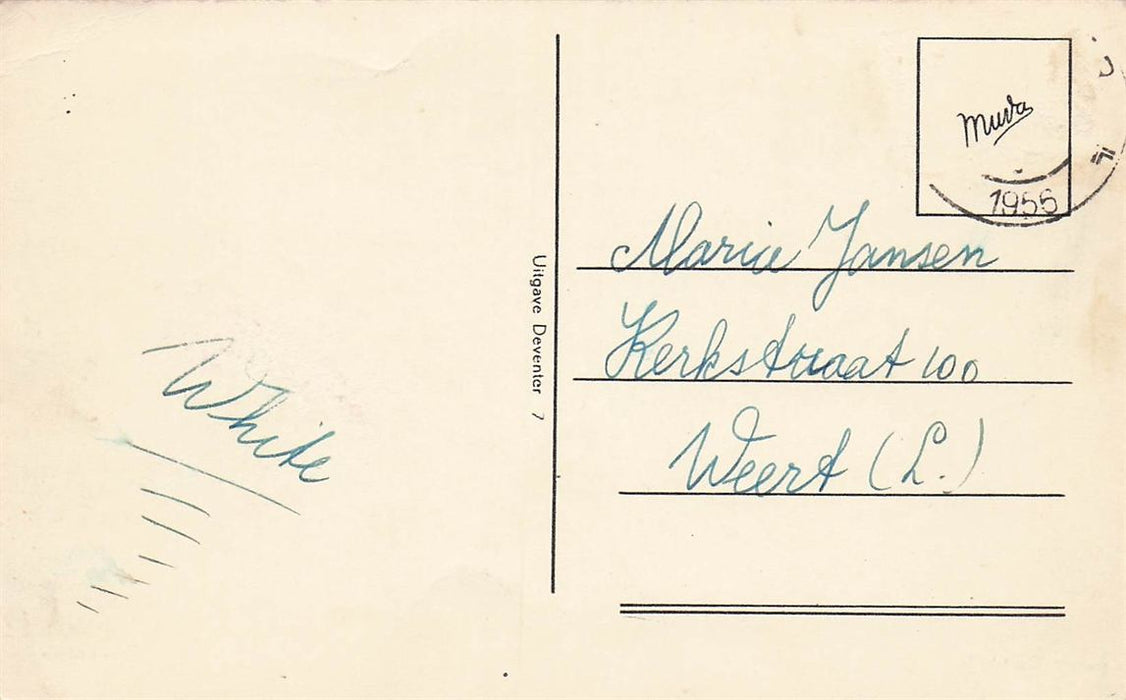 White
Uitgave Deventer 7
Muva
1956
Maria Jansen
Kerkstraat 100
Weert (L.)